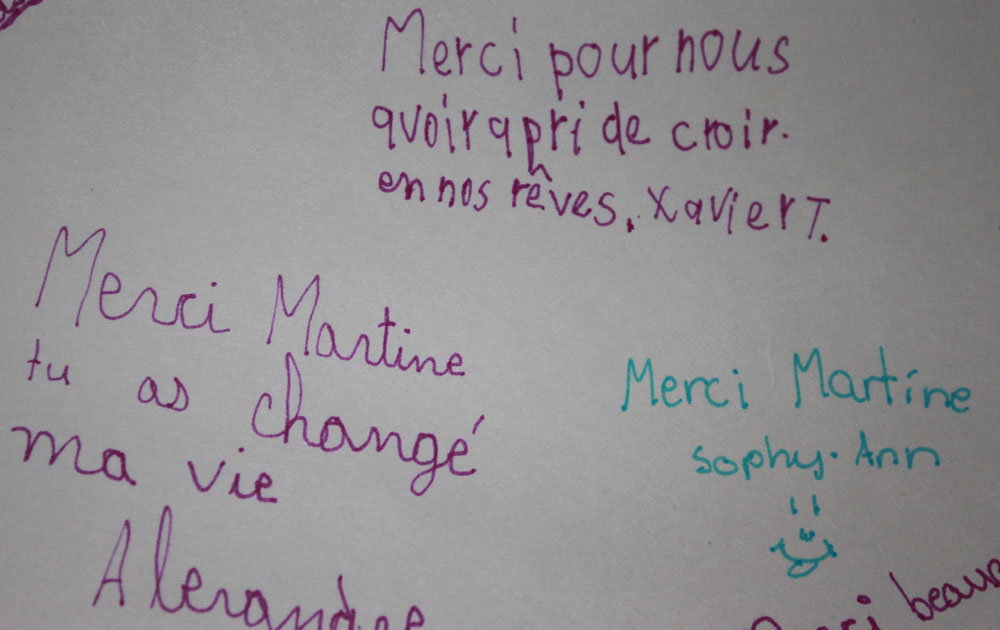 Merci pour nous
avoir apri de croir.
en nos rêves. Xavier T.
Merci Martine
tu as changé
ma vie
Alexandre
Merci Martine
sophy-Ann
Merci beauc